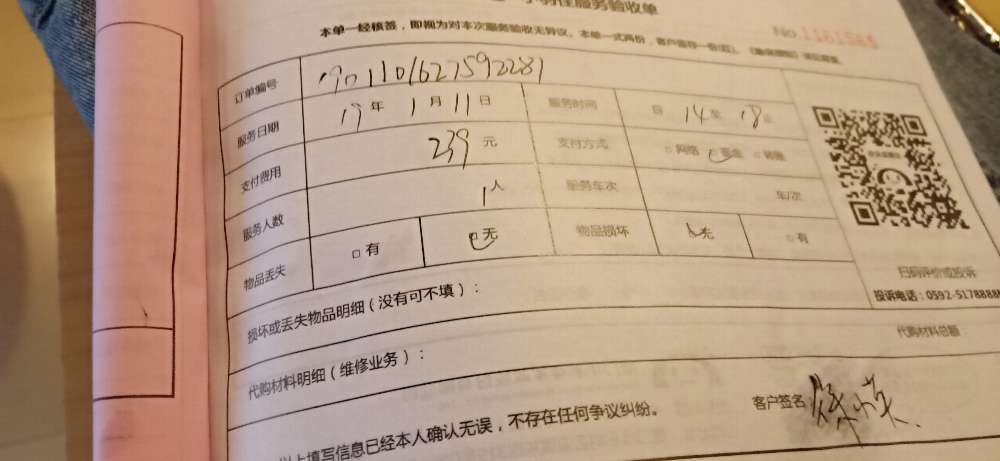 服务验收单
本单一经核签，即视为对本次服务验收无异议。本单一式两份，客户留存一份(红)。
No.
订单编号 1901101627592281
服务日期 19年 1月 11日 服务时间 自 14 至 18 止
支付费用 239 元 支付方式 □网络 □现金 □转账
服务人数 1人 服务车次 车/次
物品丢失 □有 □无 物品损坏 无 □有
扫码评价或投诉
损坏或丢失物品明细（没有可不填）：
投诉电话：0592-5178888
代购材料明细（维修业务）：
代购材料总额
以上填写信息已经本人确认无误，不存在任何争议纠纷。
客户签名